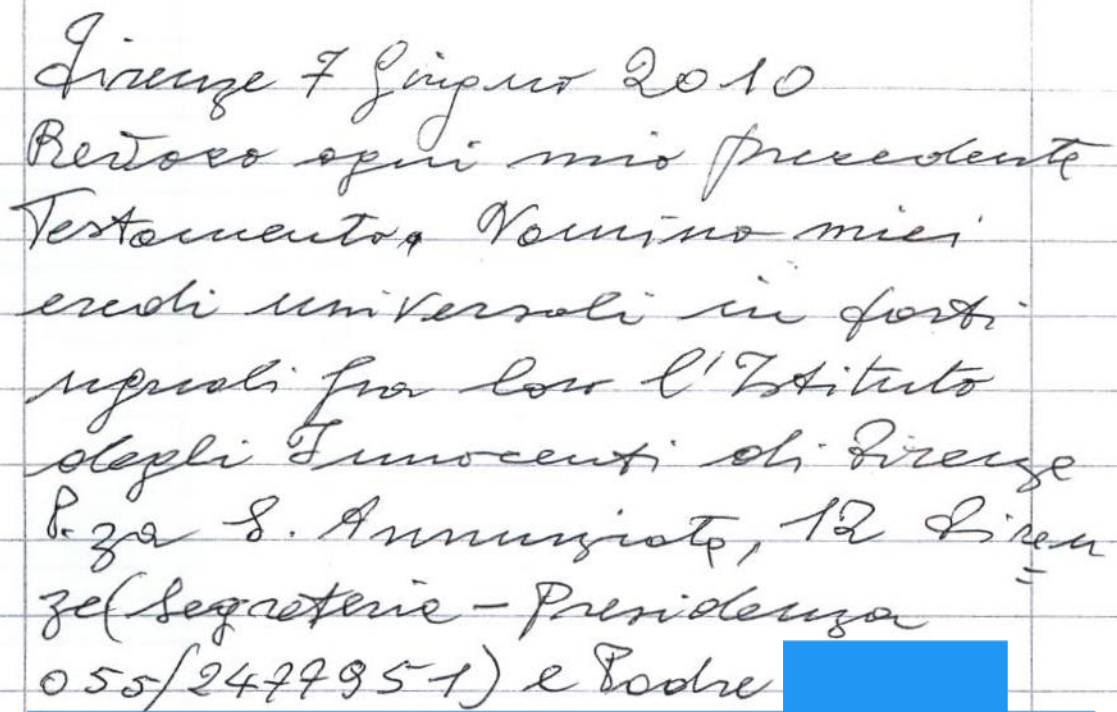 Firenze 7 Giugno 2010
Revoco ogni mio precedente
Testamento. Nomino miei
eredi universali in parti
uguali fra loro l'Istituto
degli Innocenti di Firenze
P.za S. Annunziata, 12 Firen
ze (Segreteria - Presidenza
055/2477951) e Padre